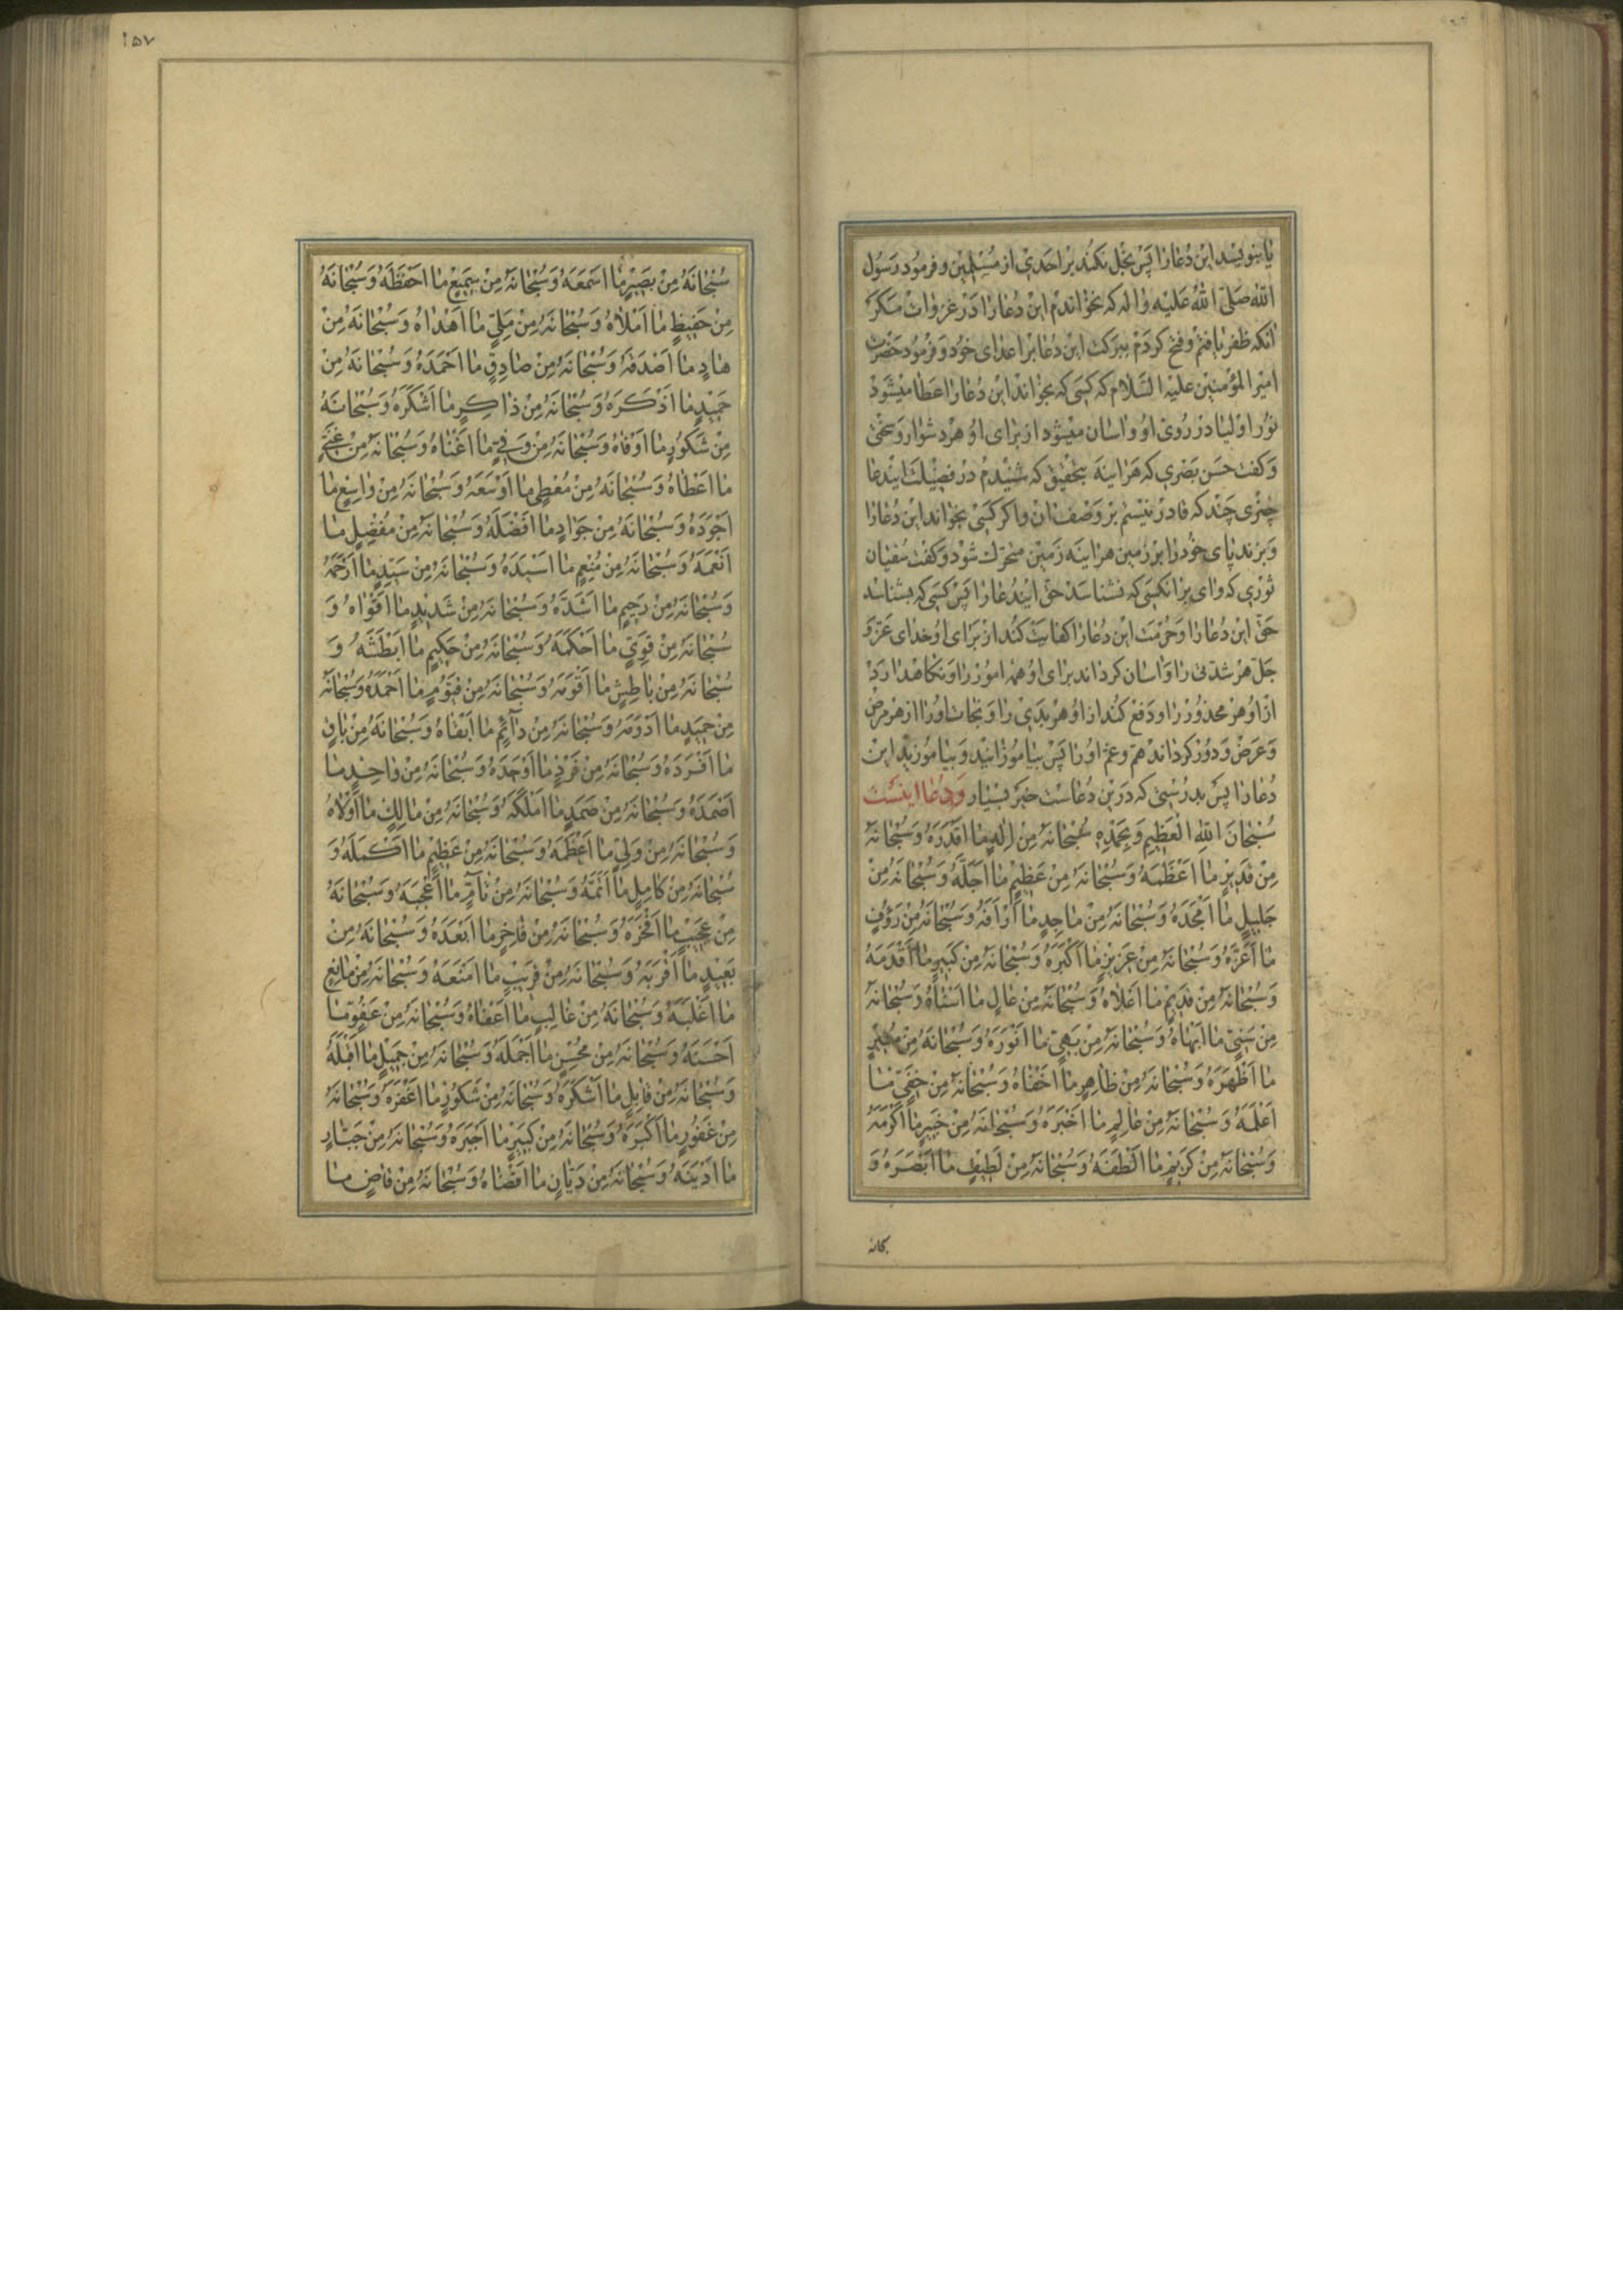 یا بنویسد این دُعا را پس بخل نکند بر احدی از مسلمین و فرمود رسول
الله صلّی الله علیه واله که نخواندم این دُعا را در غزوات مکر
آنکه ظفر یافتم و فتح کردم ببرکت این دُعا بر اعدای خود و فرمود حضرت
امیر المؤمنین علیه السّلام که کسی که بخواند این دُعا را عطا میشود
نور اولیا در روی او و آسان میشود از برای او هر دشوار و سختی
و کفت حسن بصری که هر آینه بتحقیق که شنیدم در فضیلت ایندعا
چیزی چند که قادر نیستم بر وصف آن و اکر کسی بخواند این دُعا را
و بزند پای خود را بر زمین هر آینه زمین متحرّک شود و کفت سفیان
ثوری که وای بر آنکسی که نشناسد حقّ ایندُعا را پس کسی که بشناسد
حقّ این دُعا را و حرمت این دُعا را کفایت کند از برای او خدای عزّ و
جلّ هر شدّتی را و آسان کرداند برای او همه امور را و نکاهدارد
از او هر محذور را و دفع کند از او هر بدی را و نجات او را از هر مرض
و عرض و دور کرداند همّ و غم او را پس بیاموزانید و بیاموزید این
دُعا را پس بدرستی که درین دُعاست خیر بسیار و دُعا اینست
سُبْحانَ اللهِ الْعَظیمِ وَ بِحَمْدِهِ سُبْحانَهُ مِنْ اِلهٍ ما اَقْدَرَهُ وَ سُبْحانَهُ
مِنْ قَدیرٍ ما اَعْظَمَهُ وَ سُبْحانَهُ مِنْ عَظیمٍ ما اَجَلَّهُ وَ سُبْحانَهُ مِنْ
جَلیلٍ ما اَمْجَدَهُ وَ سُبْحانَهُ مِنْ ماجِدٍ ما اَرْاَفَهُ وَ سُبْحانَهُ مِنْ رَؤُفٍ
ما اَعَزَّهُ وَ سُبْحانَهُ مِنْ عَزیزٍ ما اَکْبَرَهُ وَ سُبْحانَهُ مِنْ کَبیرٍ ما اَقْدَمَهُ
وَ سُبْحانَهُ مِنْ قَدیمٍ ما اَعْلاهُ وَ سُبْحانَهُ مِنْ عالٍ ما اَسْناهُ وَ سُبْحانَهُ
مِنْ سَنِیٍّ ما اَبْهاهُ وَ سُبْحانَهُ مِنْ بَهِیٍّ ما اَنْوَرَهُ وَ سُبْحانَهُ مِنْ مُنیرٍ
ما اَظْهَرَهُ وَ سُبْحانَهُ مِنْ ظاهِرٍ ما اَخْفاهُ وَ سُبْحانَهُ مِنْ خَفِیٍّ ما
اَعْلَمَهُ وَ سُبْحانَهُ مِنْ عالِمٍ ما اَخْبَرَهُ وَ سُبْحانَهُ مِنْ خَبیرٍ ما اَکْرَمَهُ
وَ سُبْحانَهُ مِنْ کَریمٍ ما اَلْطَفَهُ وَ سُبْحانَهُ مِنْ لَطیفٍ ما اَبْصَرَهُ وَ
۱۵۷
سُبْحانَهُ مِنْ بَصیرٍ ما اَسْمَعَهُ وَ سُبْحانَهُ مِنْ سَمیعٍ ما اَحْفَظَهُ وَ سُبْحانَهُ
مِنْ حَفیظٍ ما اَمْلاهُ وَ سُبْحانَهُ مِنْ مَلِیٍّ ما اَهْداهُ وَ سُبْحانَهُ مِنْ
هادٍ ما اَصْدَقَهُ وَ سُبْحانَهُ مِنْ صادِقٍ ما اَحْمَدَهُ وَ سُبْحانَهُ مِنْ
حَمیدٍ ما اَذْکَرَهُ وَ سُبْحانَهُ مِنْ ذاکِرٍ ما اَشْکَرَهُ وَ سُبْحانَهُ
مِنْ شَکُورٍ ما اَوْفاهُ وَ سُبْحانَهُ مِنْ وَفِیٍّ ما اَغْناهُ وَ سُبْحانَهُ مِنْ غَنِیٍّ
ما اَعْطاهُ وَ سُبْحانَهُ مِنْ مُعْطٍی ما اَوْسَعَهُ وَ سُبْحانَهُ مِنْ واسِعٍ ما
اَجْوَدَهُ وَ سُبْحانَهُ مِنْ جَوادٍ ما اَفْضَلَهُ وَ سُبْحانَهُ مِنْ مُفْضِلٍ ما
اَنْعَمَهُ وَ سُبْحانَهُ مِنْ مُنْعِمٍ ما اَسْیَدَهُ وَ سُبْحانَهُ مِنْ سَیِّدٍ ما اَرْحَمَهُ
وَ سُبْحانَهُ مِنْ رَحیمٍ ما اَشَدَّهُ وَ سُبْحانَهُ مِنْ شَدیدٍ ما اَقْواهُ وَ
سُبْحانَهُ مِنْ قَوِیٍّ ما اَحْکَمَهُ وَ سُبْحانَهُ مِنْ حَکیمٍ ما اَبْطَشَهُ وَ
سُبْحانَهُ مِنْ باطِشٍ ما اَقْوَمَهُ وَ سُبْحانَهُ مِنْ قَیُّومٍ ما اَحْمَدَهُ وَ سُبْحانَهُ
مِنْ حَمیدٍ ما اَدْوَمَهُ وَ سُبْحانَهُ مِنْ دآئِمٍ ما اَبْقاهُ وَ سُبْحانَهُ مِنْ باقٍ
ما اَفْرَدَهُ وَ سُبْحانَهُ مِنْ فَرْدٍ ما اَوْحَدَهُ وَ سُبْحانَهُ مِنْ واحِدٍ ما
اَصْمَدَهُ وَ سُبْحانَهُ مِنْ صَمَدٍ ما اَمْلَکَهُ وَ سُبْحانَهُ مِنْ مالِکٍ ما اَوْلاهُ
وَ سُبْحانَهُ مِنْ وَلِیٍّ ما اَعْظَمَهُ وَ سُبْحانَهُ مِنْ عَظیمٍ ما اَکْمَلَهُ وَ
سُبْحانَهُ مِنْ کامِلٍ ما اَتَمَّهُ وَ سُبْحانَهُ مِنْ تآمٍّ ما اَعْجَبَهُ وَ سُبْحانَهُ
مِنْ عَجیبٍ ما اَفْخَرَهُ وَ سُبْحانَهُ مِنْ فاخِرٍ ما اَبْعَدَهُ وَ سُبْحانَهُ مِنْ
بَعیدٍ ما اَقْرَبَهُ وَ سُبْحانَهُ مِنْ قَریبٍ ما اَمْنَعَهُ وَ سُبْحانَهُ مِنْ مانِعٍ
ما اَغْلَبَهُ وَ سُبْحانَهُ مِنْ غالِبٍ ما اَعْفاهُ وَ سُبْحانَهُ مِنْ عَفُوٍّ ما
اَحْسَنَهُ وَ سُبْحانَهُ مِنْ مُحْسِنٍ ما اَجْمَلَهُ وَ سُبْحانَهُ مِنْ جَمیلٍ ما اَقْبَلَهُ
وَ سُبْحانَهُ مِنْ قابِلٍ ما اَشْکَرَهُ وَ سُبْحانَهُ مِنْ شَکُورٍ ما اَغْفَرَهُ وَ سُبْحانَهُ
مِنْ غَفُورٍ ما اَکْبَرَهُ وَ سُبْحانَهُ مِنْ کَبیرٍ ما اَجْبَرَهُ وَ سُبْحانَهُ مِنْ جَبّارٍ
ما اَدْیَنَهُ وَ سُبْحانَهُ مِنْ دَیّانٍ ما اَقْضاهُ وَ سُبْحانَهُ مِنْ قاضٍ ما